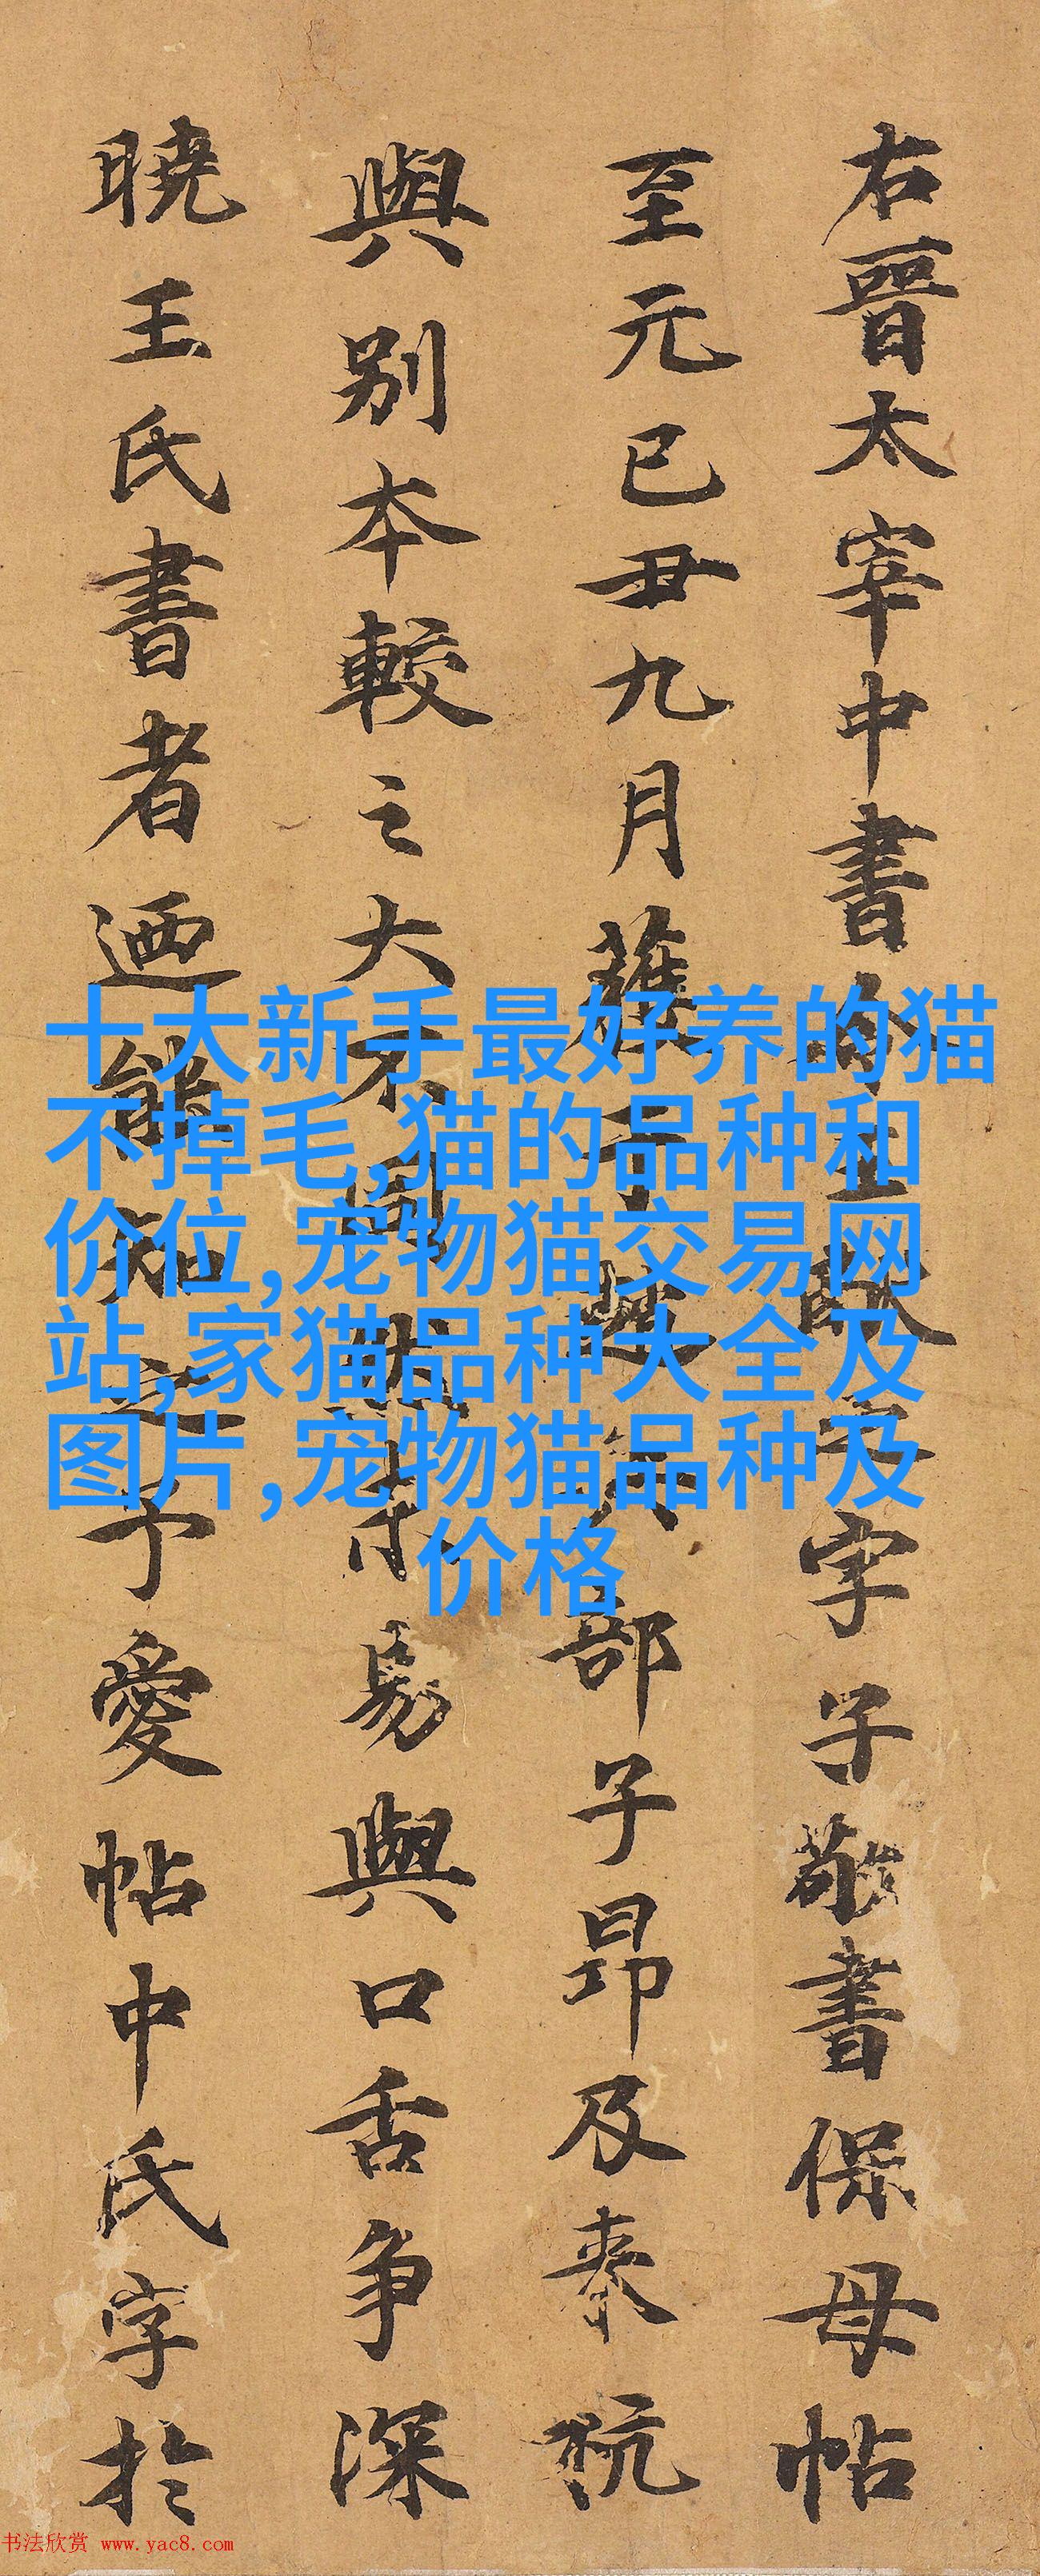 右晉太宰中書令王獻之字子敬書保母帖
至元己丑九月獲于趙兵部子昂及來杭
與別本較之大不同然未易與口舌爭深
曉王氏書者迺能知之予愛帖中氏字於
十大新手最好养的猫
不掉毛,猫的品种和
价位,宠物猫交易网
站,家猫品种大全及
图片,宠物猫品种及
价格
书法欣赏 www.yac8.com